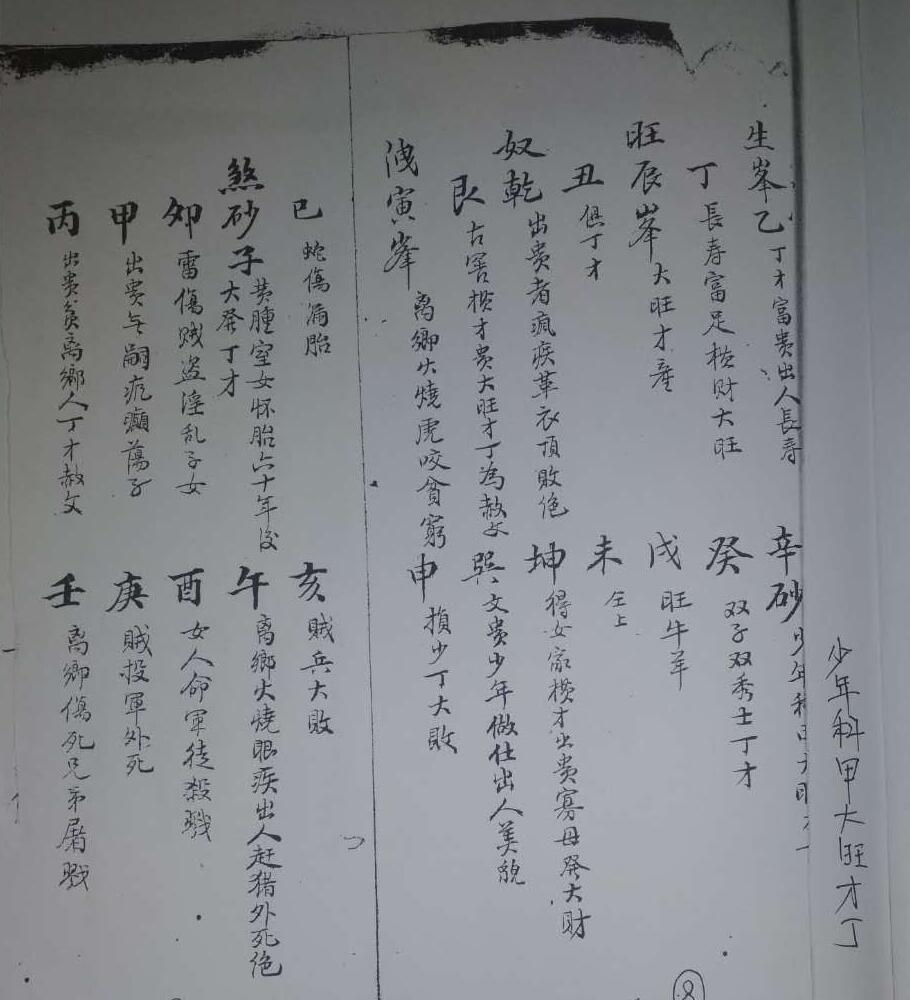 少年科甲大旺才丁
生峯乙丁才富贵出人長寿
辛砂少年科甲大旺
丁長寿富足横财大旺
癸双子双秀士丁才
旺辰峯大旺才產
戌旺牛羊
丑俱丁才
未仝上
奴乾出贵者疯疾革衣頂敗绝
坤得女家横才出贵寡母癸大财
艮古窖横才贵大旺才丁為赦文
巽文贵少年做仕出人美貌
洩寅峯离鄉火燒虎咬貧窮
申損少丁大敗
巳蛇傷漏胎
亥賊兵大敗
煞砂子黄腫室女怀胎六十年後大癸丁才
午离鄉火燒眼疾出人赶猎外死绝
卯雷傷贼盗淫乱子女
酉女人命軍徒殺戮
甲出贵无嗣疙癩蕩子
庚贼投軍外死
丙出贵贫离鄉人丁才赦文
壬离鄉傷死兄弟屠戮
8